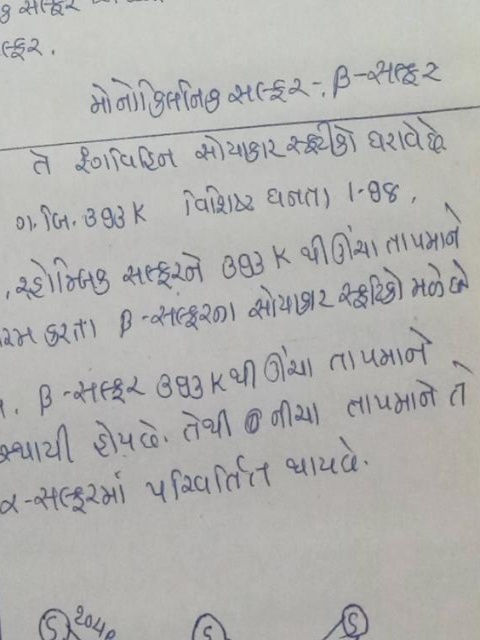 સલ્ફર
મોનોક્લિનિક સલ્ફર:- β-સલ્ફર
તે રંગવિહિન સોયાકાર સ્ફટીકો ધરાવેછે
ગ.બિ. ૩૭૩K વિશિષ્ટ ઘનતા 1.98.
, રહોમ્બિક સલ્ફરને ૩૭૩ K થી ઊંચા તાપમાને
કરતા β-સલ્ફરના સોયાકાર સ્ફટિકો મળે છે
β-સલ્ફર ૩૭૩K થી ઊંચા તાપમાને
સ્થાયી હોયછે. તેથી નીચા તાપમાને તે
α-સલ્ફરમાં પરિવર્તિત થાયછે.
S 204 S S